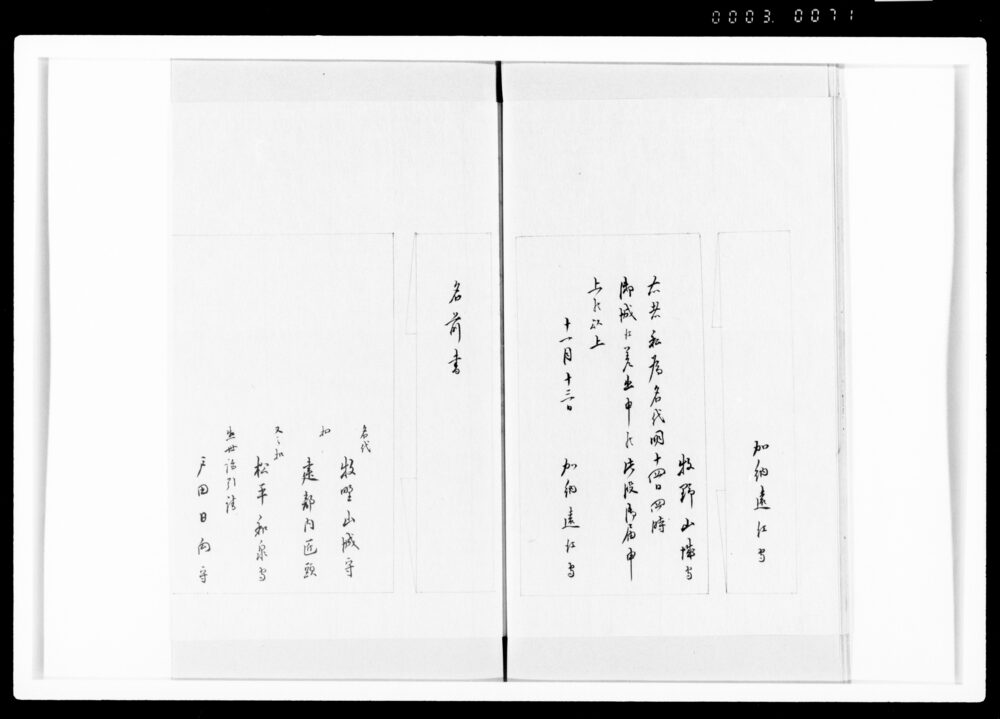 0003. 0071
加納遠江守
牧野山城守
右者私為名代明十四日四時
御城江差出申候此段御届申
上候以上
十一月十三日
加納遠江守
名前書
名代
牧野山城守
扣
建部内匠頭
又々扣
松平和泉守
出世話引請
戸田日向守